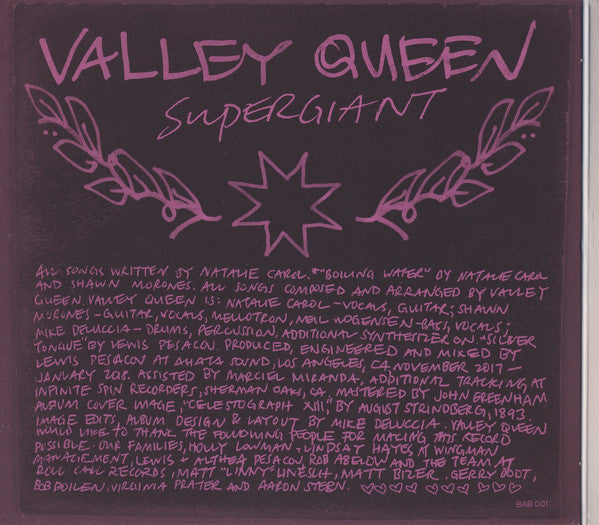 VALLEY QUEEN
SUPERGIANT
ALL SONGS WRITTEN BY NATALIE CAROL. *"BOILING WATER" BY NATALIE CAROL
AND SHAWN MORONES. ALL SONGS COMPOSED AND ARRANGED BY VALLEY
QUEEN VALLEY QUEEN IS: NATALIE CAROL - VOCALS, GUITAR; SHAWN
MORONES - GUITAR, VOCALS, MELLOTRON, NEIL WOGENSEN - BASS, VOCALS;
MIKE DELUCCIA - DRUMS, PERCUSSION. ADDITIONAL SYNTHESIZER ON "SILVER
TONGUE" BY LEWIS PESACOV. PRODUCED, ENGINEERED AND MIXED BY
LEWIS PESACOV AT AHATA SOUND, LOS ANGELES, CA, NOVEMBER 2017 -
JANUARY 2018. ASSISTED BY MARCIEL MIRANDA, ADDITIONAL TRACKING AT
INFINITE SPIN RECORDERS, SHERMAN OAKS, CA. MASTERED BY JOHN GREENHAM
ALBUM COVER IMAGE, "CELESTOGRAPH XIII," BY AUGUST STRINDBERG, 1893.
IMAGE EDITS, ALBUM DESIGN & LAYOUT BY MIKE DELUCCIA. VALLEY QUEEN
WOULD LIKE TO THANK THE FOLLOWING PEOPLE FOR MAKING THIS RECORD
POSSIBLE: OUR FAMILIES, HOLLY LOWMAN + LINDSAY HAYES AT WINGMAN
MANAGEMENT, LEWIS + ALTHEA PESACOV ROB ABELOW AND THE TEAM AT
ROLL CALL RECORDS, MATT "LINNY" LINESCH, MATT BIZER, GERRY DOOT,
BOB BOILEN, VIRGINIA PRATER AND AARON STERN.
BAB 001